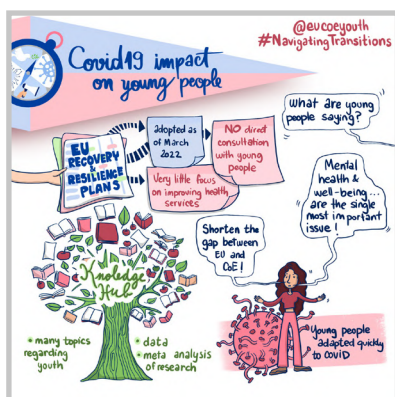 @eucoeyouth
#NavigatingTransitions
Covid19 impact
on young people
What are young
people saying?
EU
RECOVERY
&
RESILIENCE
PLANS
adopted as
of March
2022
NO direct
consultation
with young
people
Very little focus
on improving health
services
Mental
health &
well-being...
are the single
most important
issue!
Shorten the
gap between
EU and
CoE!
Knoledge
Hub
• many topics
regarding
youth
• data
• meta analysis
of research
Young people
adapted quickly
to COVID